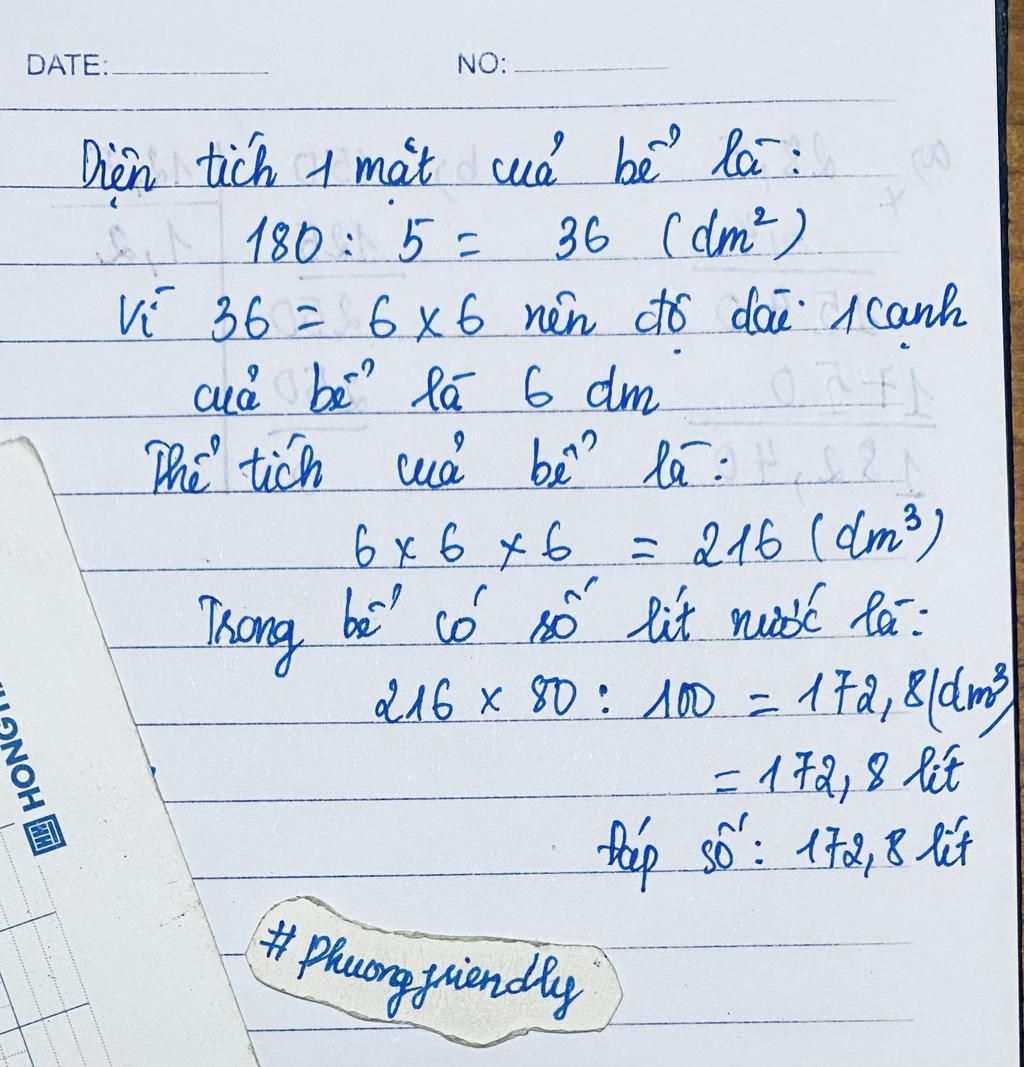 DATE: NO:
Diện tích 1 mặt của bể là:
180 : 5 = 36 (dm²)
Vì 36 = 6 x 6 nên độ dài 1 cạnh
của bể là 6 dm
Thể tích của bể là:
6 x 6 x 6 = 216 (dm³)
Trong bể có số lít nước là:
216 x 80 : 100 = 172,8 (dm³)
= 172,8 lít
Đáp số: 172,8 lít
HONG
#Phuongfriendly